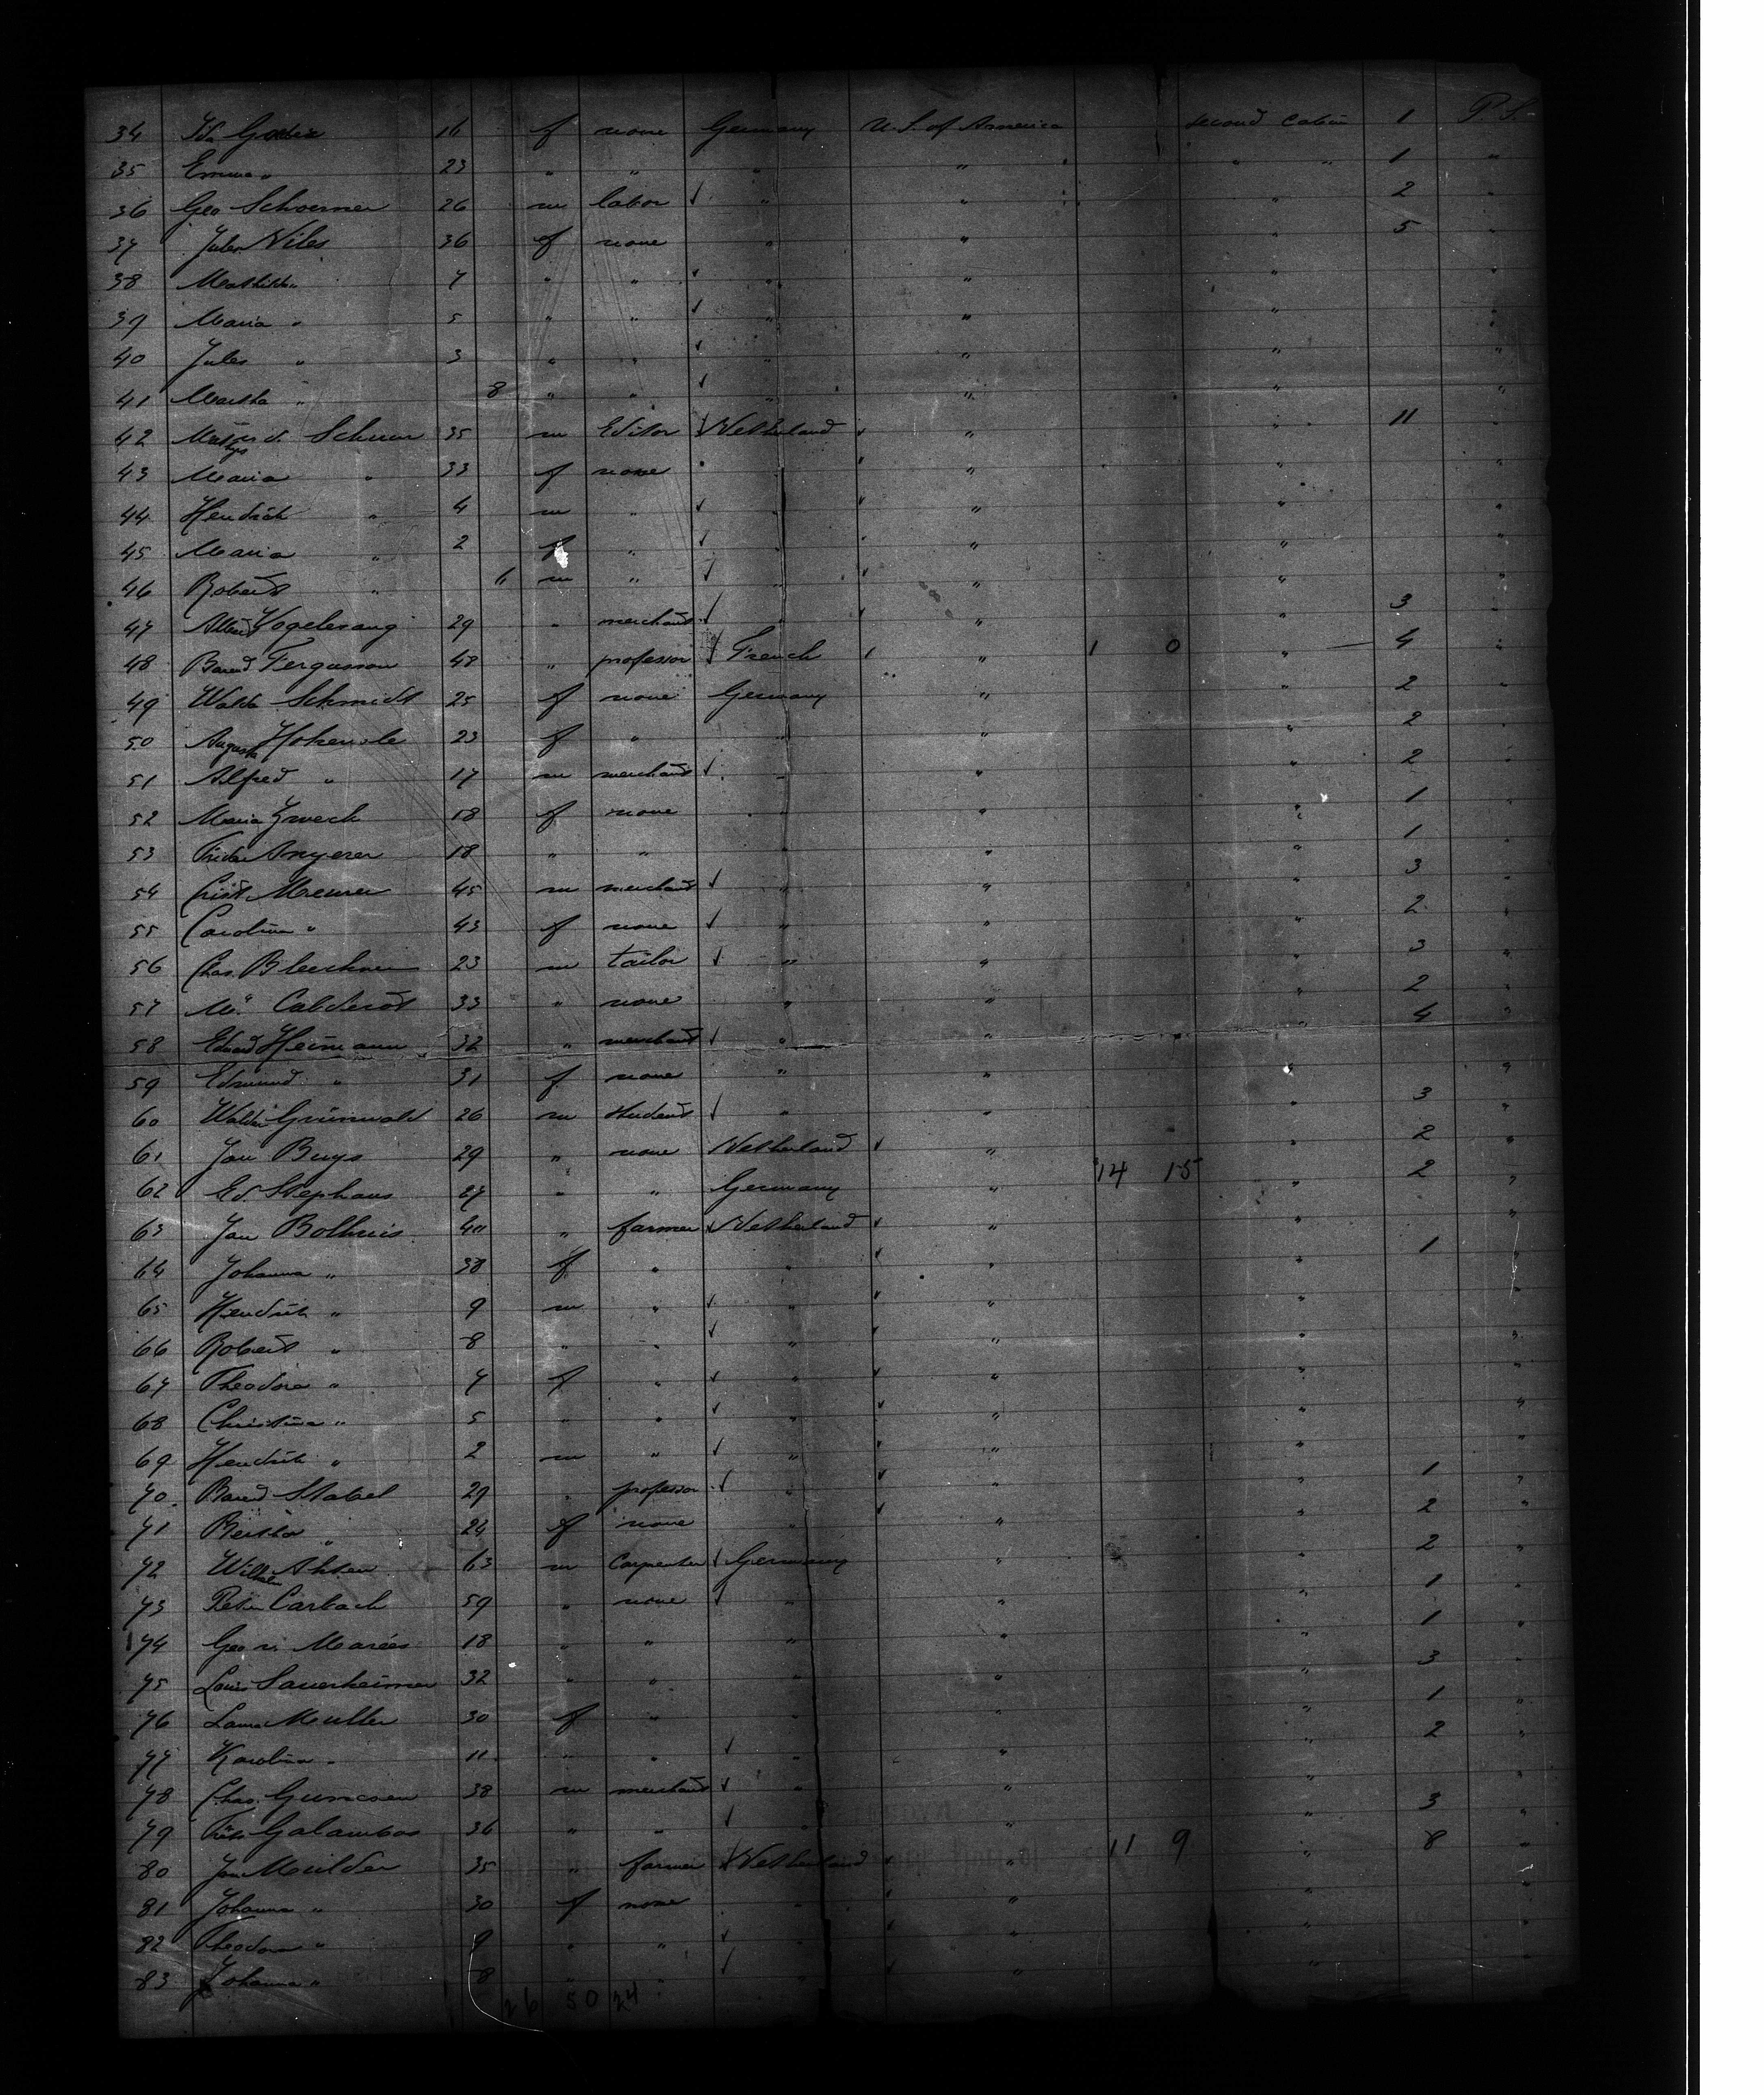 34 Ida 16 f none Germany U.S. of America second Cabin 1 P.S.
35 Emma " 23 " " " " " " 1 "
36 Geo Schoerner 26 m labor " " " 2 "
37 Niles 36 f none " " " 5 "
38 Mathilda " 7 " " " " " "
39 Maria " 5 " " " " " "
40 Jules " 3 " " " " " "
41 Martha " 8 " " " " " "
42 d. Schuur 35 m Editor Netherland " " 11 "
43 Maria " 33 f none " " " "
44 Hendrik " 4 m " " " " "
45 Maria " 2 f " " " " "
46 Robert " 6 m " " " " "
47 Albert Vogelesang 29 " merchant " " " 3 "
48 Barend Fergusson 48 " professor French " 1 0 " 4 "
49 Schmidt 25 f none Germany " " 2 "
50 Augusta 23 f " " " " 2 "
51 Alfred " 17 m merchant " " " 2 "
52 Maria Zweck 18 f none " " " 1 "
53 Frieda 18 " " " " " 1 "
54 Meurer 45 m merchant " " " 3 "
55 Carolina " 43 f none " " " 2 "
56 Chas. Blechner 23 m tailor " " " 3 "
57 33 " none " " " 2 "
58 Eduard Heimann 32 " merchant " " " 4 "
59 Edmund " 31 f none " " "
60 Grünwald 26 m student " " " 3 "
61 Jan Buys 29 " none Netherland " " 2 "
62 Ed Stephans 27 " " Germany " 14 15 " 2 "
63 Jan Bolhuis 40 " farmer Netherland " " "
64 Johanna " 38 f " " " " 1 "
65 Hendrik " 9 m " " " " "
66 Robert " 8 " " " " " "
67 Theodora " 7 f " " " " "
68 Christina " 5 " " " " " "
69 Hendrik " 2 m " " " " "
70 Barend Stabel 29 " professor " " " 1 "
71 Bertha " 24 f none " " " 2 "
72 Wilhelm Ahten 63 m Carpenter Germany " " 2 "
73 Peter Carbach 59 " none " " " 1 "
74 Geo v. Marées 18 " " " " " 1 "
75 Louis Sauerheimer 32 " " " " " 3 "
76 Laura Muller 30 f " " " " 1 "
77 Karolina " 11 " " " " " 2 "
78 Chas. 38 m merchant " " "
79 Galambos 36 " " " " " 3 "
80 Jan Muilder 35 " farmer Netherland " 11 9 " 8 "
81 Johanna " 30 f none " " " "
82 Theodora " 9 " " " " " "
83 Johanna " 8 " " " " " "
26 50 24